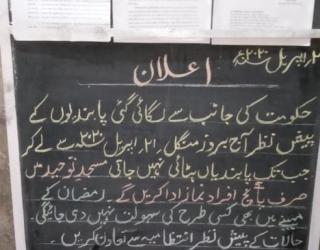 ۲۱ اپریل ۲۰۲۰ء
اعلان
حکومت کی جانب سے لگائی گئی پابندیوں کے
پیش نظر آج بروز منگل ۲۱ اپریل ۲۰۲۰ء سے لے کر
جب تک پابندیاں ہٹائی نہیں جاتی مسجد توحید میں
صرف پانچ افراد نماز ادا کریں گے۔ رمضان کے
مہینے میں بھی کسی طرح کی سہولت نہیں دی جائیگی
حالات کے پیش نظر انتظامیہ سے تعاون کریں۔